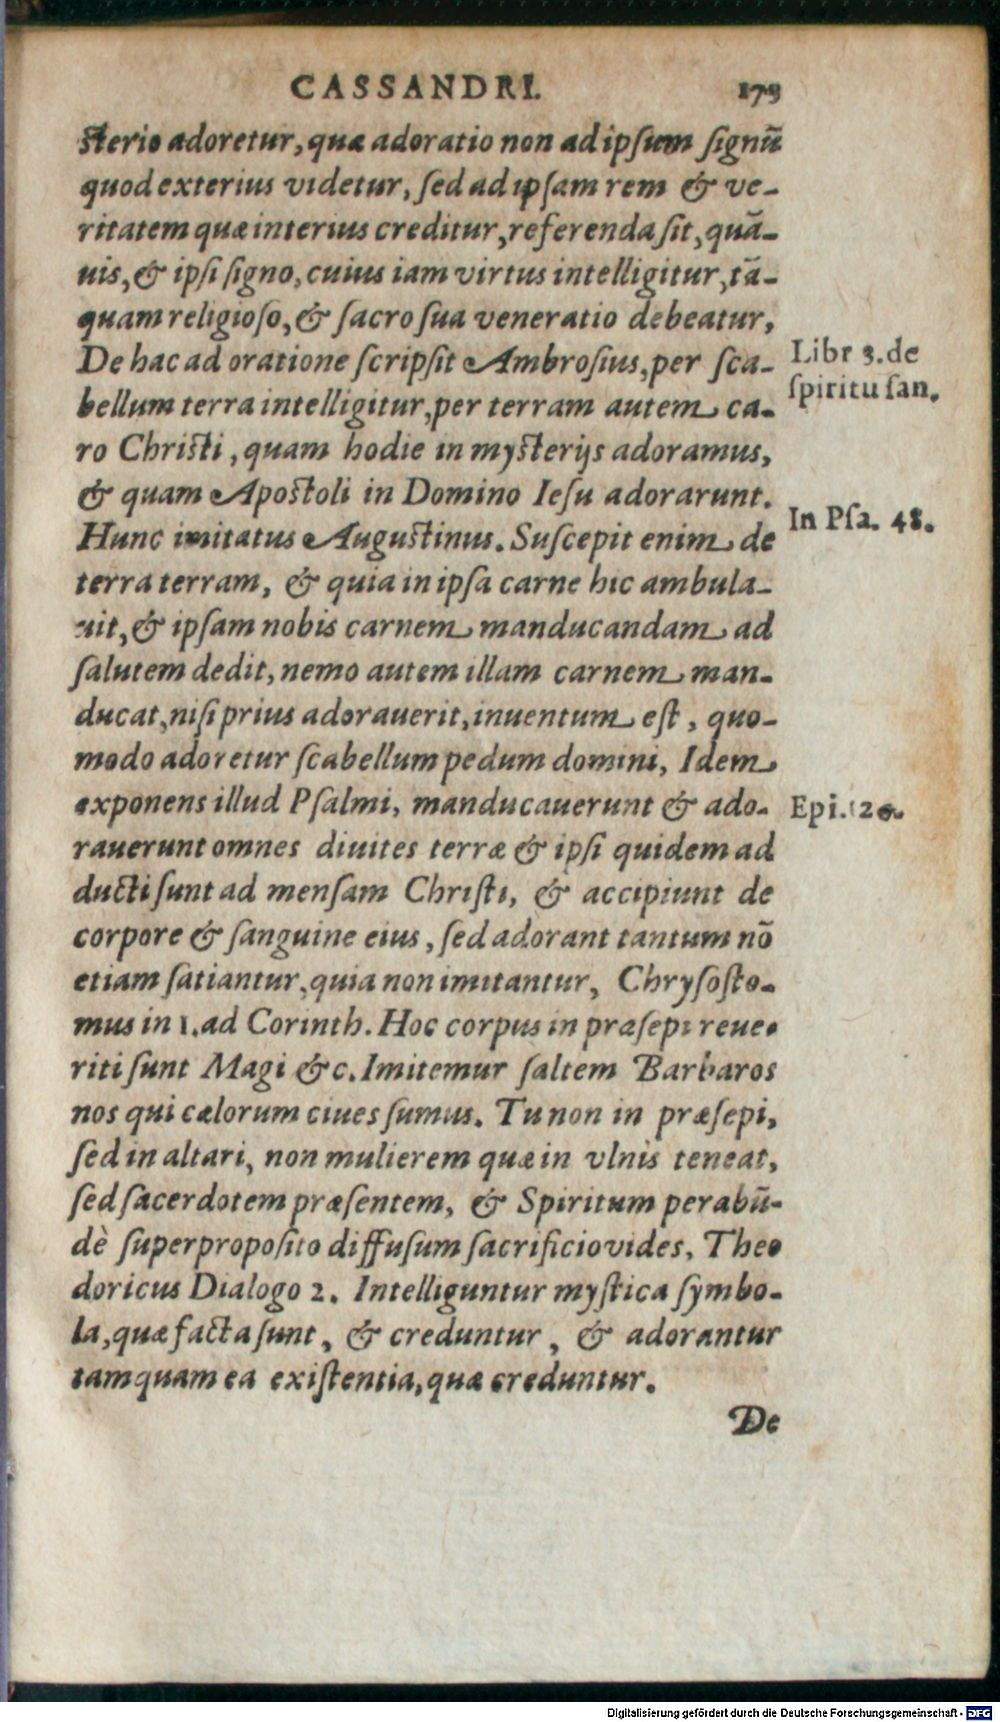 CASSANDRI. 179
sterio adoretur, quæ adoratio non ad ipsum signũ
quod exterius videtur, sed ad ipsam rem & ve-
ritatem quæ interius creditur, referenda sit, quã-
uis, & ipsi signo, cuius iam virtus intelligitur, tã-
quam religioso, & sacro sua veneratio debeatur,
De hac ad oratione scripsit Ambrosius, per sca-
Libr 3. de
spiritu san.
bellum terra intelligitur, per terram autem ca-
ro Christi, quam hodie in mysterijs adoramus,
& quam Apostoli in Domino Iesu adorarunt.
In Psa. 48.
Hunc imitatus Augustinus. Suscepit enim de
terra terram, & quia in ipsa carne hic ambula-
uit, & ipsam nobis carnem manducandam ad
salutem dedit, nemo autem illam carnem man-
ducat, nisi prius adorauerit, inuentum est, quo-
modo adoretur scabellum pedum domini, Idem
exponens illud Psalmi, manducauerunt & ado-
Epi. 120.
rauerunt omnes diuites terræ & ipsi quidem ad
ducti sunt ad mensam Christi, & accipiunt de
corpore & sanguine eius, sed adorant tantum nõ
etiam satiantur, quia non imitantur, Chrysosto-
mus in 1. ad Corinth. Hoc corpus in præsepi reue-
riti sunt Magi &c. Imitemur saltem Barbaros
nos qui cælorum ciues sumus. Tu non in præsepi,
sed in altari, non mulierem quæ in vlnis teneat,
sed sacerdotem præsentem, & Spiritum perabũ-
dè superproposito diffusum sacrificio vides, Theo
doricus Dialogo 2. Intelliguntur mystica symbo-
la, quæ facta sunt, & creduntur, & adorantur
tamquam ea existentia, quæ creduntur.
De
Digitalisierung gefördert durch die Deutsche Forschungsgemeinschaft - DFG